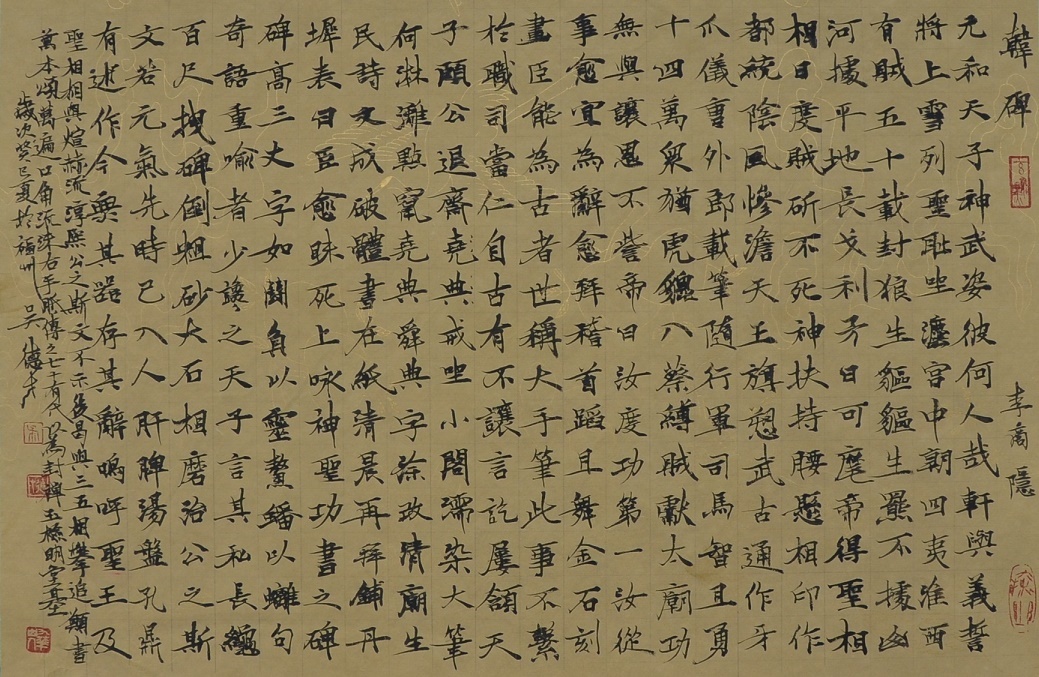 韓碑 李商隱
元和天子神武姿彼何人哉軒與羲誓
將上雪列聖恥坐灋宮中朝四夷淮西
有賊五十載封狼生貙貙生羆不據山
河據平地長戈利矛日可麾帝得聖相
相曰度賊斫不死神扶持腰懸相印作
都統陰風慘澹天王旗愬武古通作牙
爪儀曹外郎載筆隨行軍司馬智且勇
十四萬眾猶虎貔入蔡縛賊獻太廟功
無與讓恩不訾帝曰汝度功第一汝從
事愈宜為辭愈拜稽首蹈且舞金石刻
畫臣能為古者世稱大手筆此事不繫
於職司當仁自古有不讓言訖屢頷天
子頤公退齋堯典戒坐小閤濡染大筆
何淋灕點竄堯典舜典字塗改清廟生
民詩文成破體書在紙清晨再拜鋪丹
墀表曰臣愈昧死上咏神聖功書之碑
碑高三丈字如鬭負以靈鰲蟠以螭句
奇語重喻者少讒之天子言其私長繩
百尺拽碑倒粗砂大石相磨治公之斯
文若元氣先時已入人肝脾湯盤孔鼎
有述作今無其器存其辭嗚呼聖王及
聖相相與煊赫流淳熙公之斯文不示後曷與三五相攀追願書
萬本誦萬遍口角流沫右手胝傳之七十有二代以為封禪玉檢明堂基
歲次癸巳夏於福州 吳德